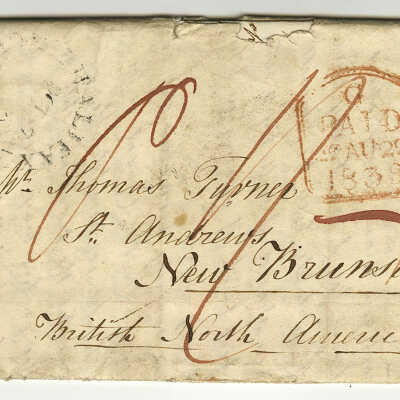 HALIFAX
G
PAID
AU 29
1838
Mr. Thomas Turner
St. Andrews
New Bruns
British North Americ